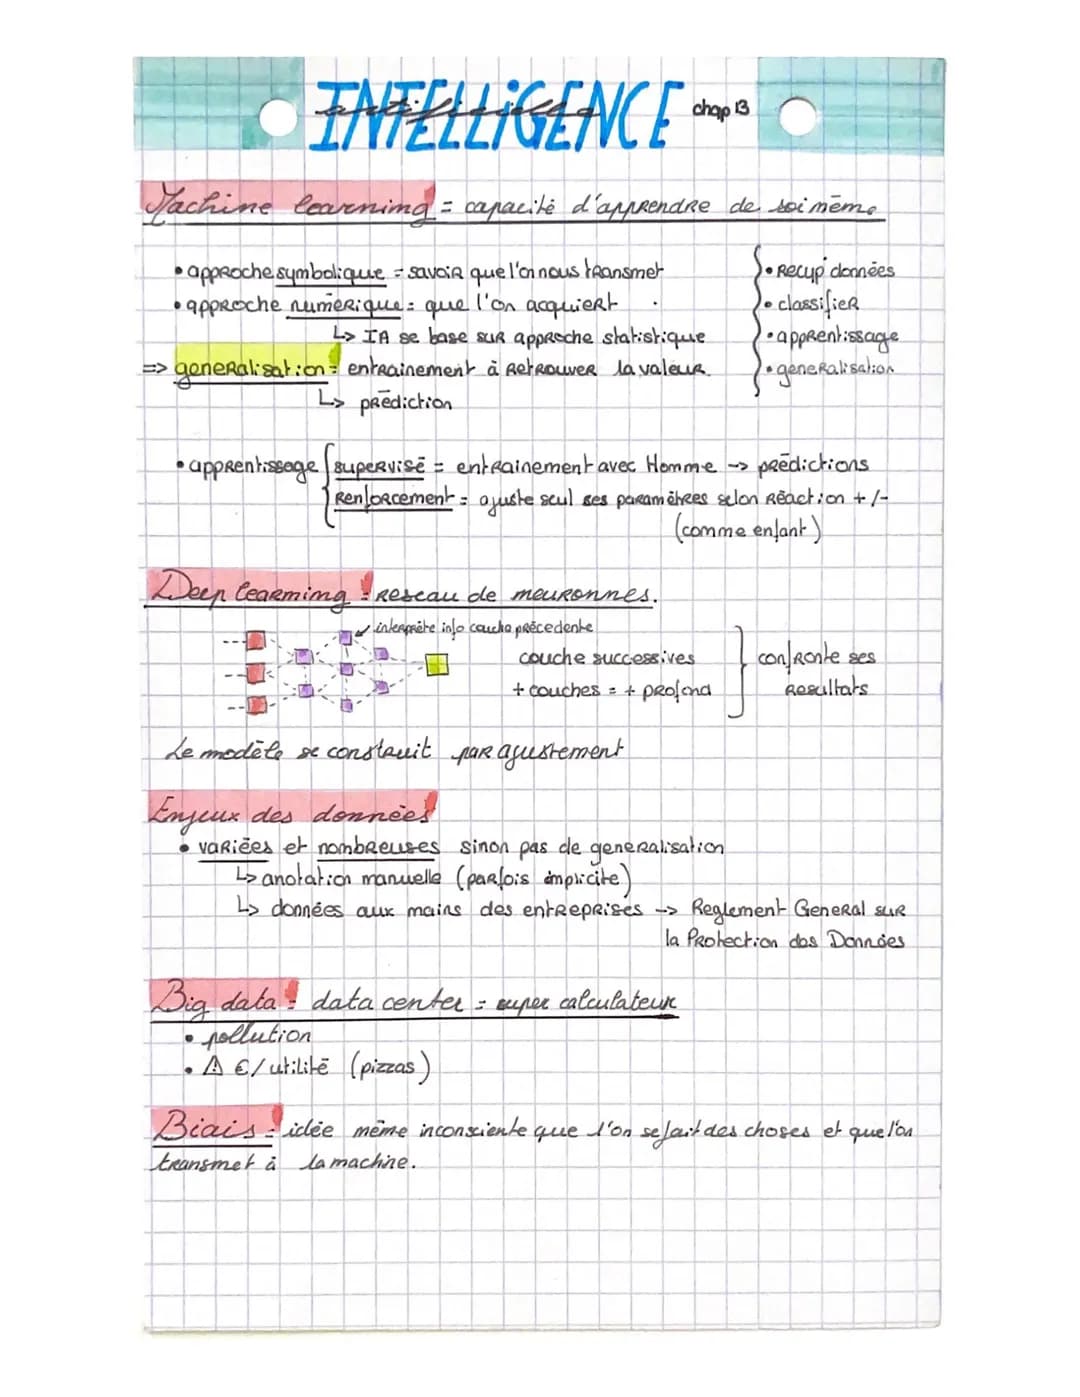 INTELLiGENCE chap 13
artificielle
Machine learning = capacité d'apprendre de soi même
• approche symbolique = savoir que l'on nous transmet
• approche numérique = que l'on acquiert
↳ IA se base sur approche statistique
=> generalisation = entrainement à retrouver la valeur
↳ prédiction
• Recup données
• classifier
• apprentissage
• generalisation
• apprentissage supervisé = entrainement avec Homme -> prédictions
Renforcement = ajuste seul ses paramètres selon réaction +/-
(comme enfant)
Deep learning = reseau de neuronnes.
interprète info couche précedente
couche successives
+ couches = + profond
confronte ses
resultats
Le modèle se construit par ajustement
Enjeux des données
• variées et nombreuses sinon pas de generalisation
↳ anotation manuelle (parfois implicite)
↳ données aux mains des entreprises -> Reglement General sur
la Protection des Données
Big data = data center = super calculateur
• pollution
• ⚠ €/utilité (pizzas)
Biais = idée même inconsciente que l'on se fait des choses et que l'on
transmet à la machine.